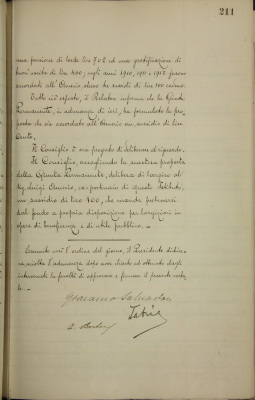 211
una pensione di lorde lire 702 ed una gratificazione di
fuori uscita di lire 400; negli anni 1910, 1911 e 1912 furono
accordati all' sussidi di lire 100 cadauno.
Tutto ciò esposto, il Relatore informa che la Giunta
Permanente, in adunanza di ieri, ha formulato la pro-
posta che sia accordato all' un sussidio di lire
cento.
Il Consiglio è ora pregato di deliberare al riguardo.
Il Consiglio, accogliendo la suestesa proposta
della Giunta Permanente, delibera di largire al
Sig. Luigi, ex-portinaio di questo Istituto,
un sussidio di lire 100, che manda prelevarsi
dal fondo a propria disposizione per largizioni in
opere di beneficenza e di utile pubblico. —
Esaurito così l'ordine del giorno, il Presidente dichia-
ra sciolta l'adunanza dopo aver chiesto ed ottenuto dagli
intervenuti la facoltà di approvare e firmare il presente verba-
le. —